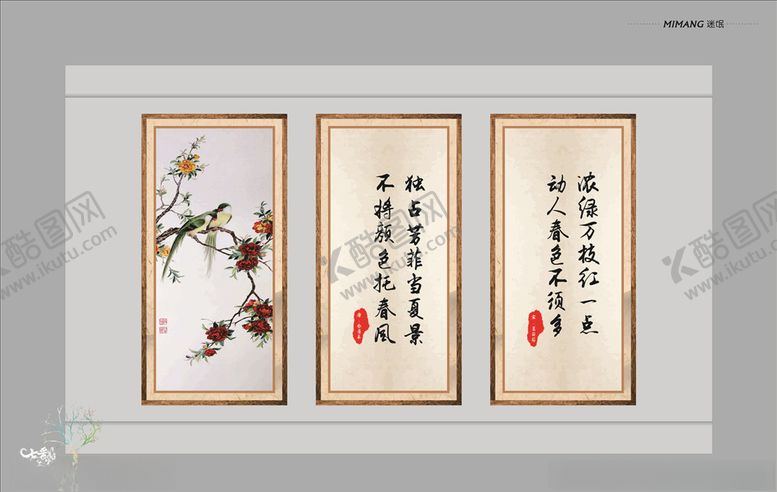 MIMANG 迷氓
独占芳菲当夏景
不将颜色托春风
浓绿万枝红一点
动人春色不须多
酷图网
www.ikutu.com
酷图网
www.ikutu.com
酷图网
www.ikutu.com